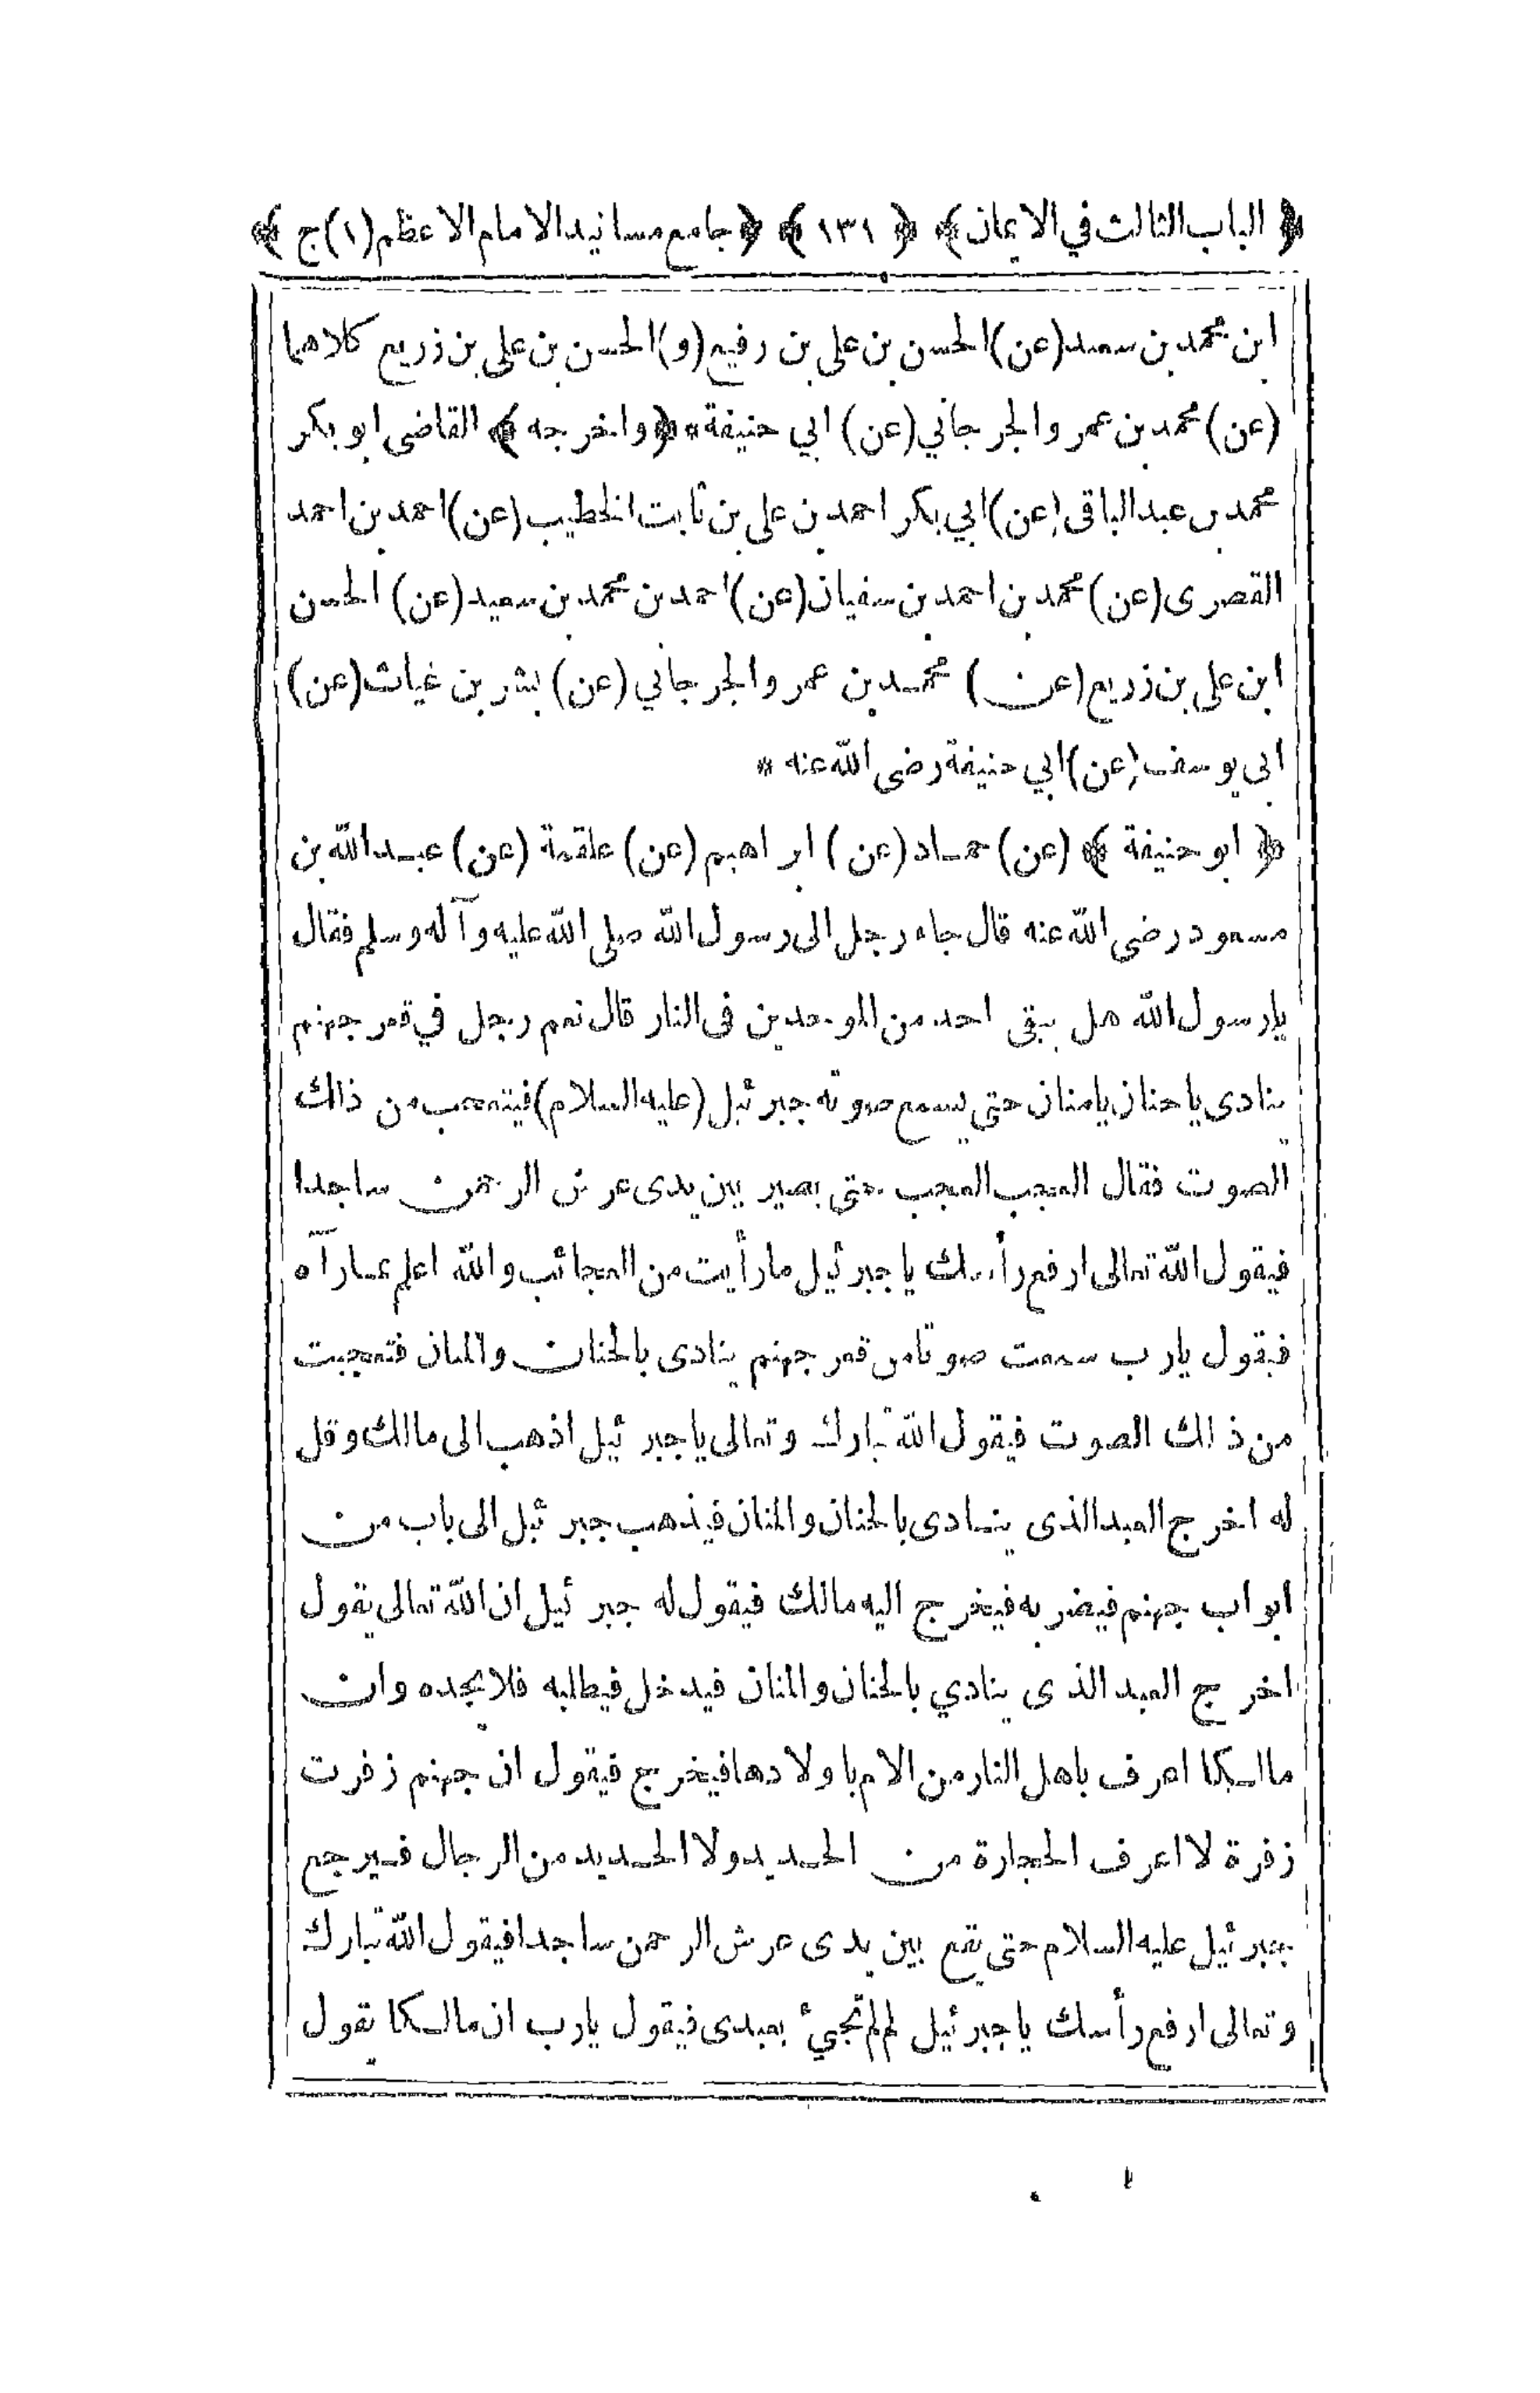 ﴿ الباب الثالث في الايمان ﴾ ﴿ ١٣١ ﴾ ﴿ جامع مسانيد الامام الاعظم (١) ج ﴾
ابن محمد بن سعيد (عن) الحسن بن على بن رفيع (و) الحسن بن على بن زريع كلاهما
(عن) محمد بن عمر والجرجاني (عن) ابي حنيفة * ﴿ واخرجه ﴾ القاضى ابو بكر
محمد بن عبد الباقى (عن) ابي بكر احمد بن على بن ثابت الخطيب (عن) احمد بن احمد
القصرى (عن) محمد بن احمد بن سفيان (عن) احمد بن محمد بن سعيد (عن) الحسن
ابن على بن زريع (عن) محمد بن عمر والجرجاني (عن) بشر بن غياث (عن)
ابى يوسف (عن) ابي حنيفة رضى الله عنه *
﴿ ابو حنيفة ﴾ (عن) حماد (عن) ابراهيم (عن) علقمة (عن) عبد الله بن
مسعود رضى الله عنه قال جاء رجل الى رسول الله صلى الله عليه وآله وسلم فقال
يارسول الله هل يبقى احد من الموحدين فى النار قال نعم رجل في قعر جهنم
ينادى ياحنان يامنان حتى يسمع صوته جبرئيل (عليه السلام) فيتعجب من ذلك
الصوت فقال العجب العجب حتى يصير بين يدى عرش الرحمن ساجدا
فيقول الله تعالى ارفع رأسك ياجبرئيل مارأيت من العجائب والله اعلم بمارآه
فيقول يارب سمعت صوتا من قعر جهنم ينادى بالحنان والمنان فتعجبت
من ذلك الصوت فيقول الله تبارك وتعالى ياجبرئيل اذهب الى مالك وقل
له اخرج العبد الذى ينادى بالحنان والمنان فيذهب جبرئيل الى باب من
ابواب جهنم فيضربه فيخرج اليه مالك فيقول له جبرئيل ان الله تعالى يقول
اخرج العبد الذى ينادي بالحنان والمنان فيدخل فيطلبه فلايجده وان
مالكا اعرف باهل النار من الام باولادها فيخرج فيقول ان جهنم زفرت
زفرة لا اعرف الحجارة من الحديد ولا الحديد من الرجال فيرجع
جبرئيل عليه السلام حتى يقع بين يدى عرش الرحمن ساجدا فيقول الله تبارك
وتعالى ارفع رأسك ياجبرئيل لم لم تجيئ بعبدى فيقول يارب ان مالكا يقول